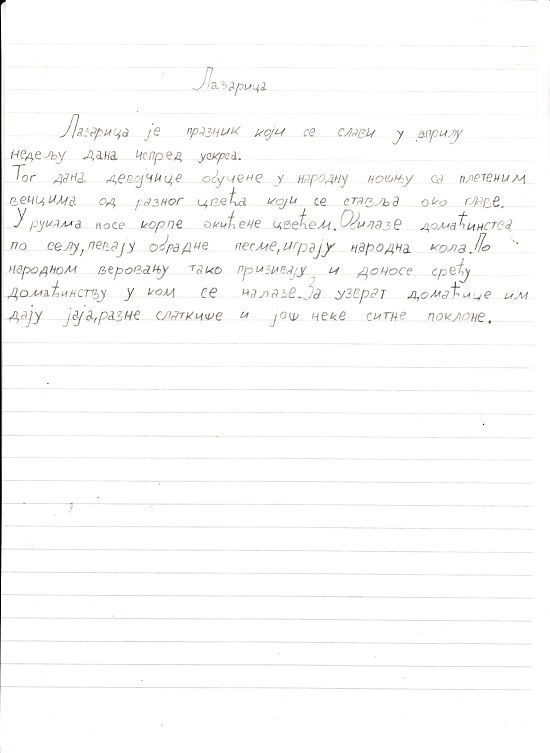 Лазарица
Лазарица је празник који се слави у априлу
недељу дана испред ускрса.
Тог дана девојчице обучене у народну ношњу са плетеним
венцима од разног цвећа који се ставља око главе.
У рукама носе корпе окићене цвећем.Обилазе домаћинства
по селу,певају обрадне песме,играју народна кола.По
народном веровању тако призивају и доносе срећу
домаћинству у ком се налазе.За узерат домаћице им
дају јаја,разне слаткише и још неке ситне поклоне.